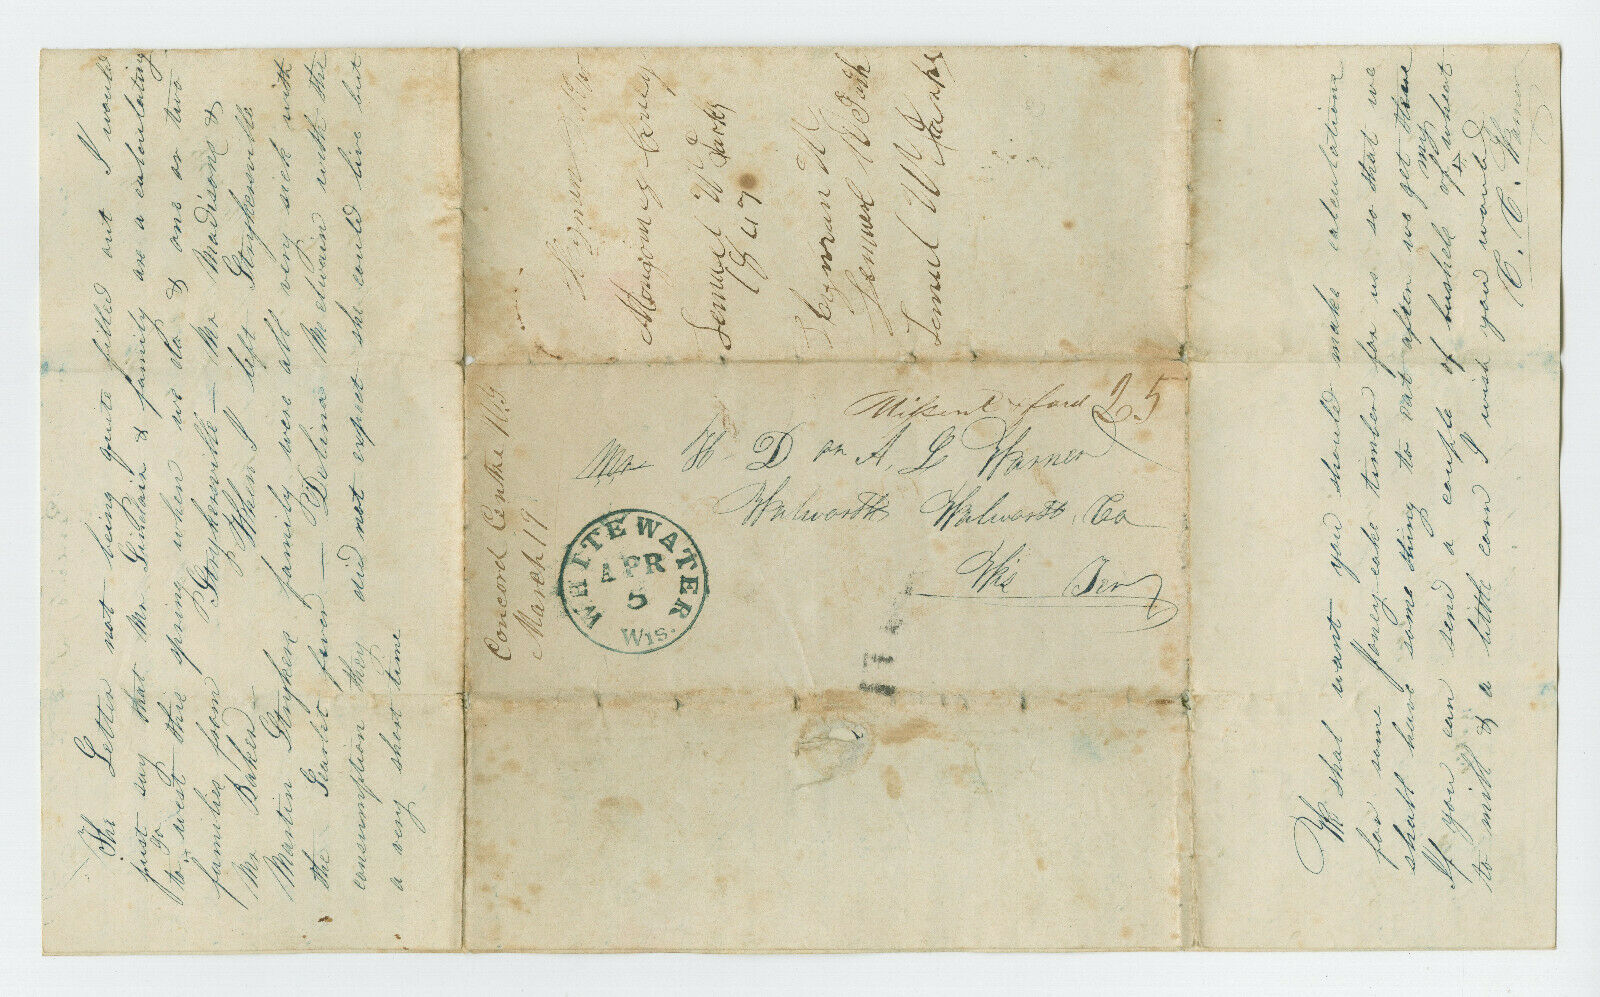 The Letter not being quite filled out I would
just say that Mr Sinclair & family are a calculating
to go west this spring when we do & one or two
families from Strykersville — Mr Madisons &
Mr Bakers — When I left Strykersville
Martin Strykers family were all very sick with
the Scarlet fever — Delina McElwain with the
consumption they did not expect she could live but
a very short time
Concord Centre
March 19
WHITEWATER
APR
5
WIS.
Missent & ford 25
Mr H. D or A. L Warner
Walworth Walworth Co
Wis Ter
Hyman
Lemuel W Parks
1847
Hyman
Lemuel W Park
Lemuel W Parks
We shal want you should make calculations
for some Joney cake timber for us so that we
shall have some thing to eat after we get there
If you can send a couple of bushels of my wheat
to mill & a little corn I wish you would
C. C. Warner